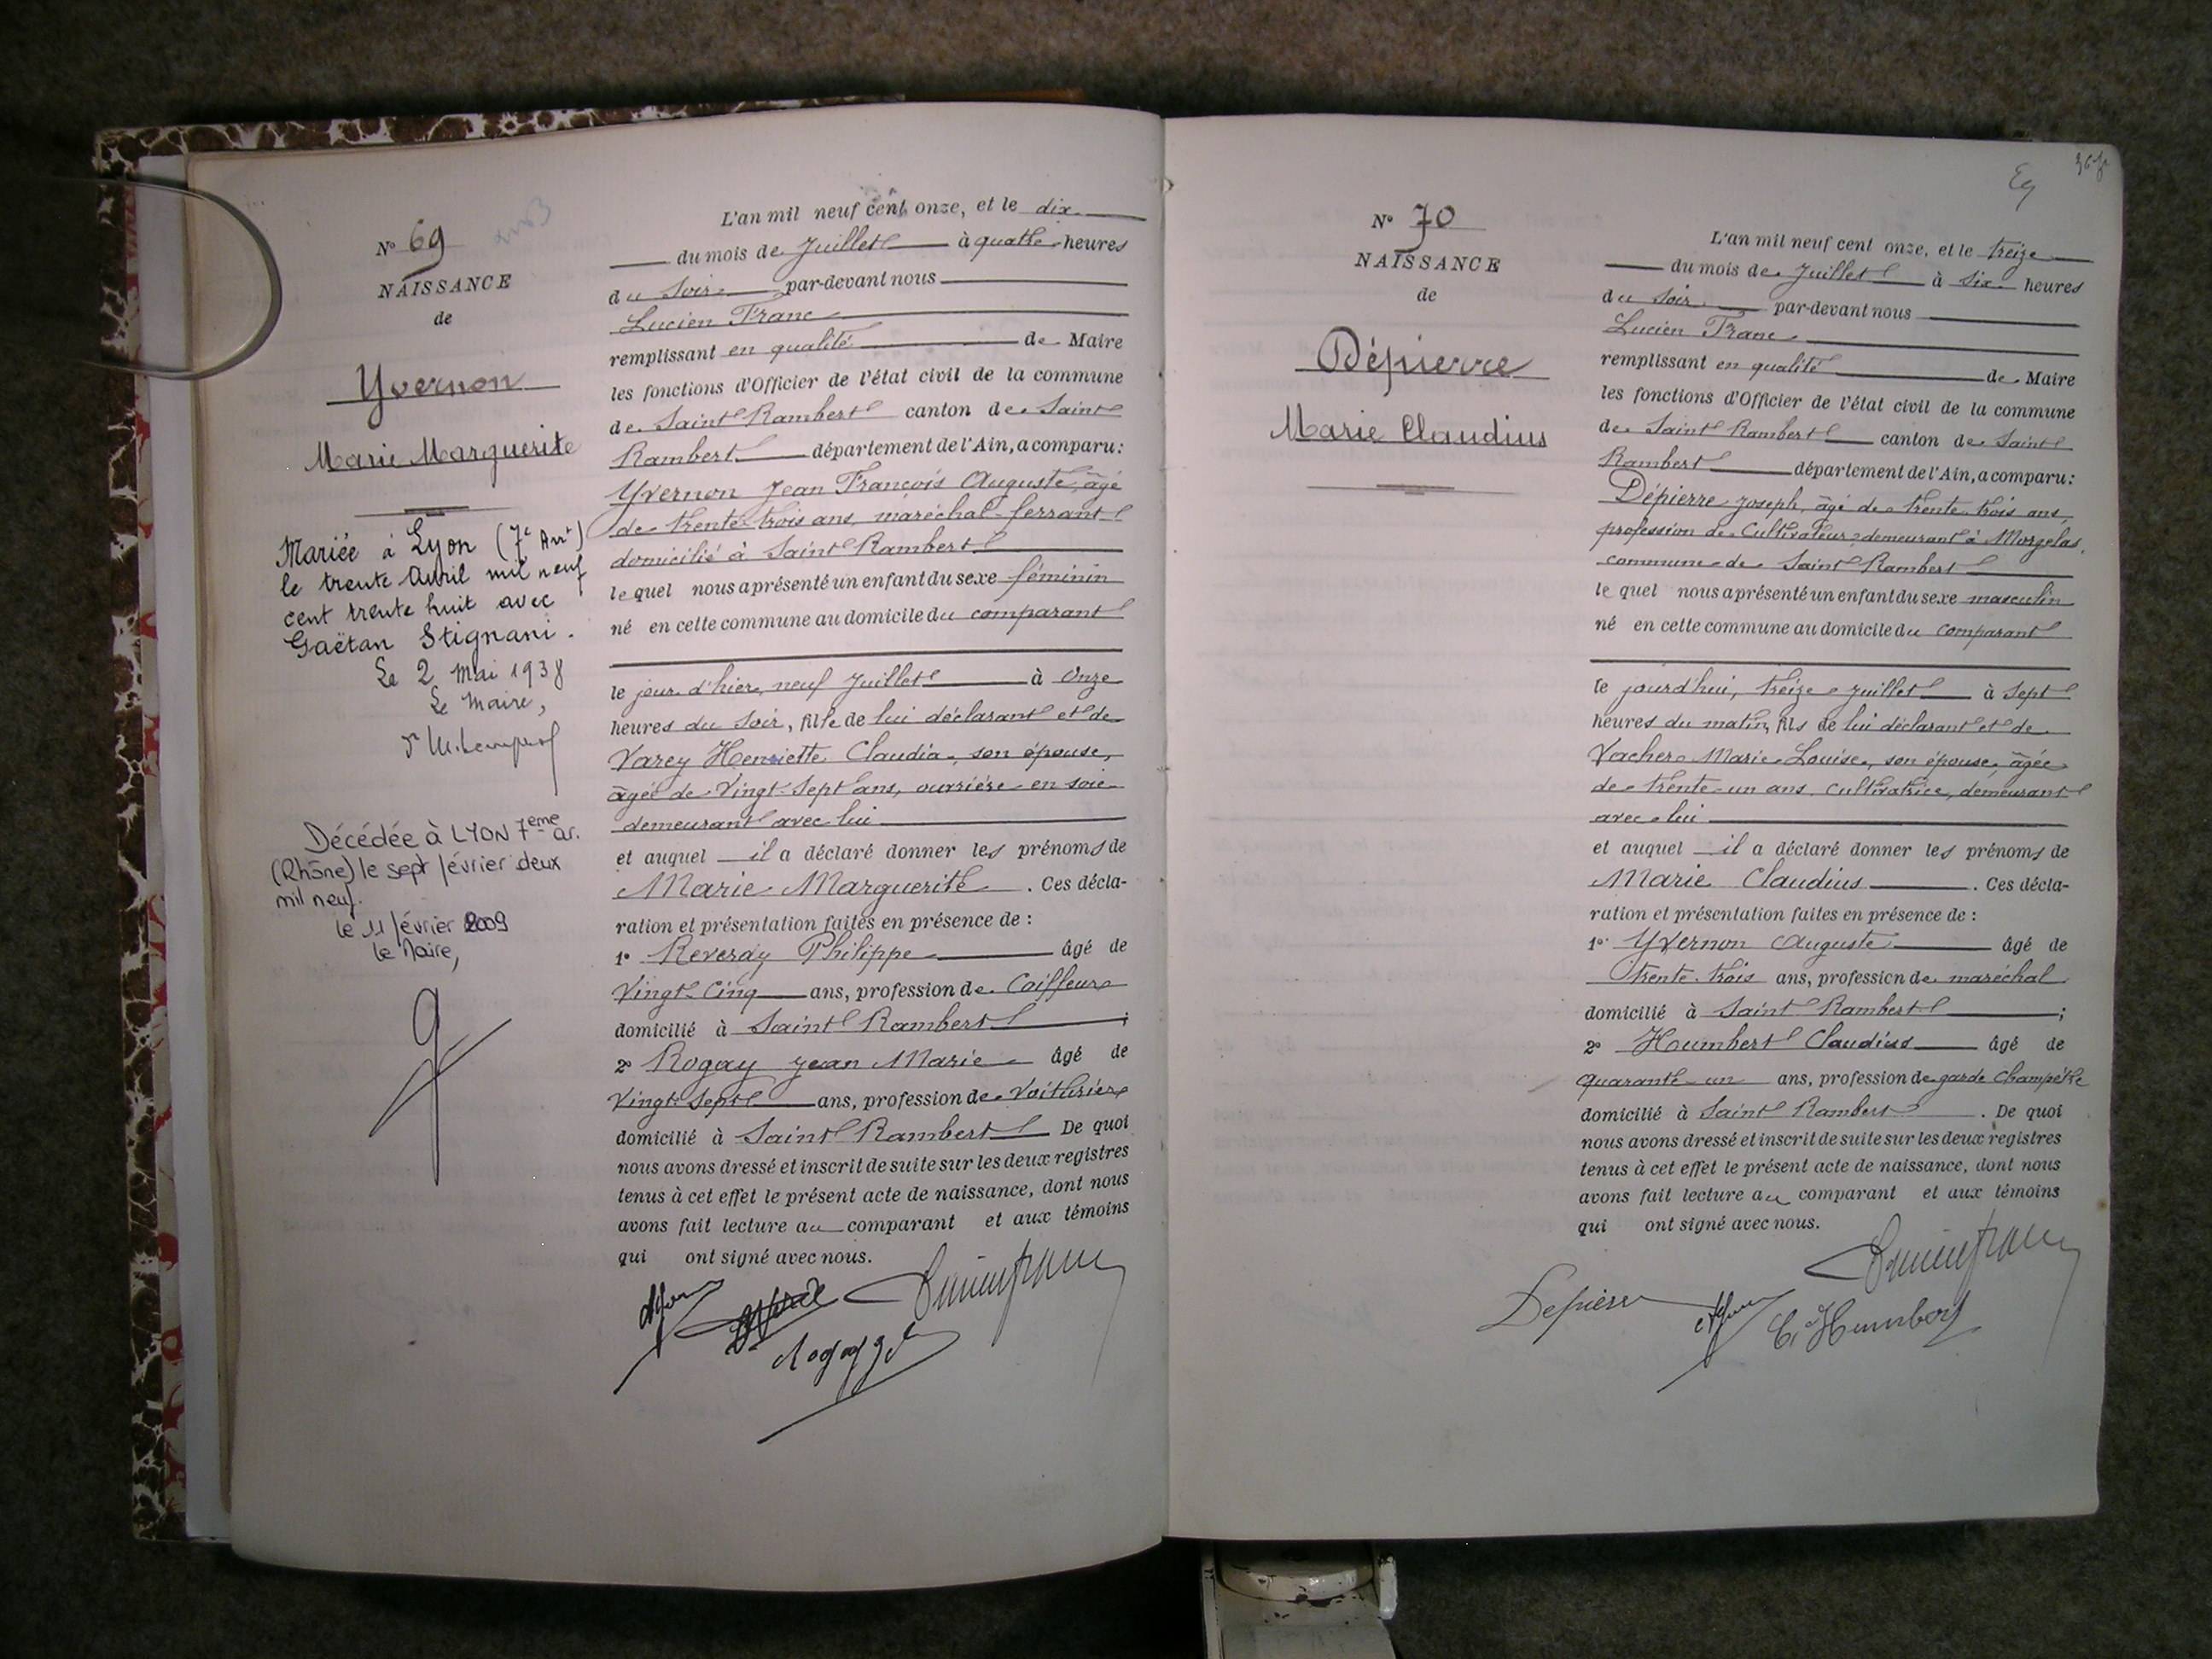 N° 69
NAISSANCE
de
Yvernon
Marie Marguerite
Mariée à Lyon (7e Arrt)
le trente Avril mil neuf
cent trente huit avec
Gaëtan Stignani.
Le 2 Mai 1938
Le Maire,
Décédée à LYON 7ème ar.
(Rhône) le sept février deux
mil neuf.
le 11 février 2009
le Maire,
L'an mil neuf cent onze, et le dix
du mois de Juillet à quatre heures
du soir par-devant nous
Lucien Franc
remplissant en qualité de Maire
les fonctions d'Officier de l'état civil de la commune
de Saint Rambert canton de Saint
Rambert département de l'Ain, a comparu:
Yvernon Jean François Auguste, âgé
de trente-trois ans, maréchal-ferrant
domicilié à Saint Rambert
le quel nous a présenté un enfant du sexe féminin
né en cette commune au domicile du comparant
le jour d'hier, neuf Juillet à Onze
heures du soir, fille de lui déclarant et de
Varey Henriette Claudia, son épouse,
âgée de Vingt-Sept ans, ouvrière en soie
demeurant avec lui
et auquel il a déclaré donner les prénoms de
Marie Marguerite. Ces décla-
ration et présentation faites en présence de :
1° Reverdy Philippe âgé de
Vingt-Cinq ans, profession de Coiffeur
domicilié à Saint Rambert ;
2° Rogay Jean Marie âgé de
Vingt-Sept ans, profession de Voiturier
domicilié à Saint Rambert De quoi
nous avons dressé et inscrit de suite sur les deux registres
tenus à cet effet le présent acte de naissance, dont nous
avons fait lecture au comparant et aux témoins
qui ont signé avec nous.
N° 70
NAISSANCE
de
Dépierre
Marie Claudius
L'an mil neuf cent onze, et le treize
du mois de Juillet à six heures
du soir par-devant nous
Lucien Franc
remplissant en qualité de Maire
les fonctions d'Officier de l'état civil de la commune
de Saint Rambert canton de Saint
Rambert département de l'Ain, a comparu:
Dépierre Joseph, âgé de trente-trois ans,
profession de Cultivateur demeurant à Morgelas,
commune de Saint Rambert
le quel nous a présenté un enfant du sexe masculin
né en cette commune au domicile du comparant
le jourd'hui, treize Juillet à Sept
heures du matin, fils de lui déclarant et de
Vacher Marie Louise, son épouse, âgée
de trente-un ans, cultivatrice, demeurant
avec lui
et auquel il a déclaré donner les prénoms de
Marie Claudius. Ces décla-
ration et présentation faites en présence de :
1° Yvernon Auguste âgé de
trente-trois ans, profession de maréchal
domicilié à Saint Rambert ;
2° Humbert Claudius âgé de
quarante-un ans, profession de garde champêtre
domicilié à Saint Rambert. De quoi
nous avons dressé et inscrit de suite sur les deux registres
tenus à cet effet le présent acte de naissance, dont nous
avons fait lecture au comparant et aux témoins
qui ont signé avec nous.
Depierre
Cl Humbert